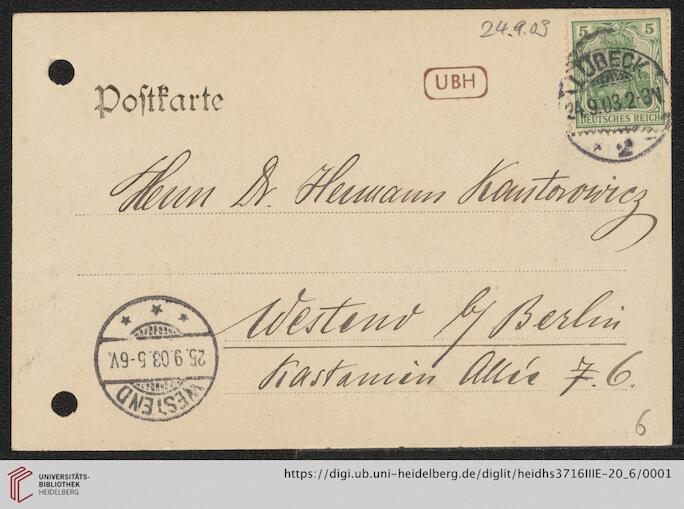 24.9.03
5 5
DEUTSCHES REICH
LÜBECK
24.9.03.2-3N
* 2
Postkarte
UBH
Herrn Dr. Hermann Kantorowicz
Westend b/ Berlin
Kastanien Allée 7. 6.
WESTEND
25.9.03.5-6V.
6
UNIVERSITÄTS-
BIBLIOTHEK
HEIDELBERG
https://digi.ub.uni-heidelberg.de/diglit/heidhs3716IIIE-20_6/0001